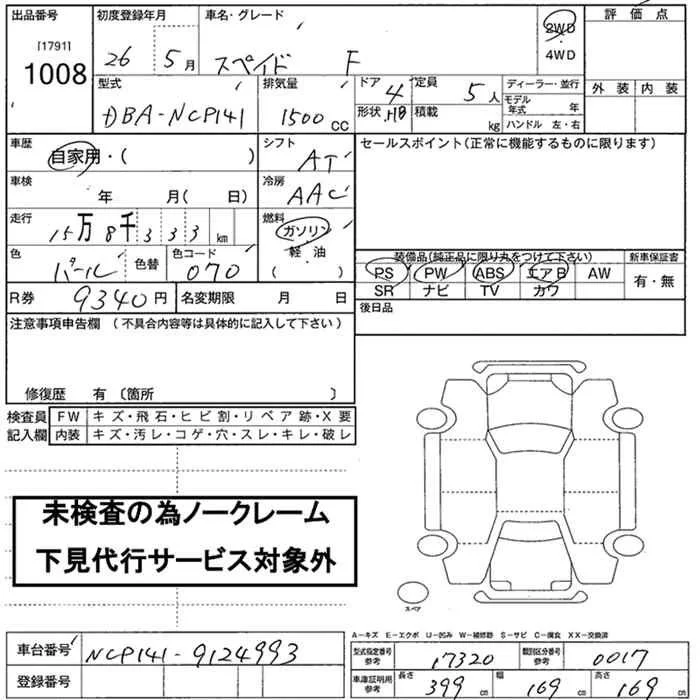 出品番号 初度登録年月 車名・グレード 2WD 評価点
[1791] 26 5月 スペイド F 4WD
1008 型式 排気量 ドア 4 定員 5人 ディーラー・並行 外装 内装
DBA-NCP141 1500cc 形状 HB 積載 kg モデル年式 年
ハンドル 左・右
車歴 自家用・( ) シフト AT セールスポイント(正常に機能するものに限ります)
車検 年 月( 日) 冷房 AAC
走行 15万8千333km 燃料 ガソリン
軽油
( )
色 パール 色替 色コード 070
装備品(純正品に限り丸をつけて下さい) 新車保証書
PS PW ABS エアB AW 有・無
SR ナビ TV カワ
R券 9340円 名変期限 月 日 後日品
注意事項申告欄 (不具合内容等は具体的に記入して下さい)
修復歴 有 〔箇所 〕
検査員 FW キズ・飛石・ヒビ割・リペア跡・X要
記入欄 内装 キズ・汚レ・コゲ・穴・スレ・キレ・破レ
未検査の為ノークレーム
下見代行サービス対象外
スペア
A-キズ E-エクボ U-凹み W-補修跡 S-サビ C-腐食 XX-交換済
車台番号 NCP141-9124993 型式指定番号 参考 17320 類別区分番号 参考 0017
登録番号 車庫証明用 参考 長さ 399cm 幅 169cm 高さ 169cm